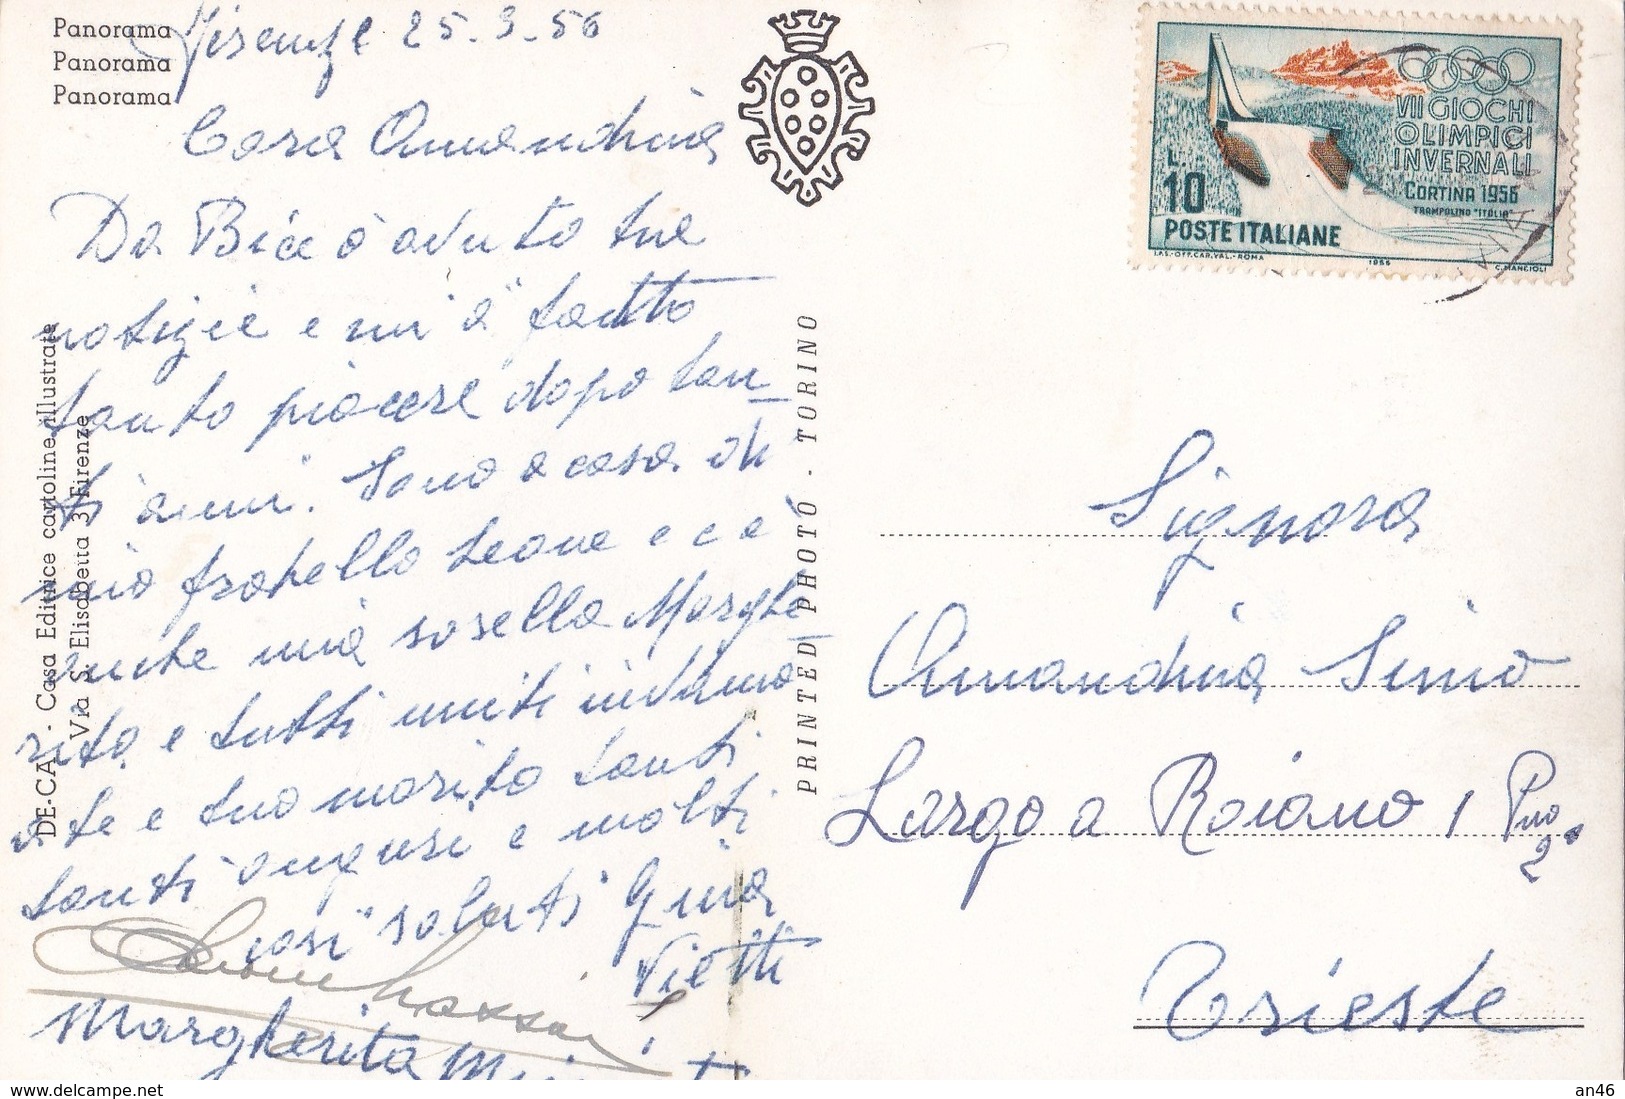 Panorama
Panorama
Panorama
Firenze 25.3.56
Cara Amandina
Da Bice ò avuto tue
notizie e mi à fatto
tanto piacere dopo tan-
ti anni. Sono a casa di
mio fratello Leone e c'è
anche mia sorella Marghe
rita e tutti uniti inviamo
a te e tuo marito tanti
tanti auguri e molti
cari saluti Gina
Vietti
Margherita
DE-CA - Casa Editrice cartoline illustrate
Via S. Elisabetta 3 Firenze
PRINTED PHOTO - TORINO
VII GIOCHI
OLIMPICI
INVERNALI
CORTINA 1956
TRAMPOLINO "ITALIA"
L. 10
POSTE ITALIANE
I.P.S.-OFF.CAR.VAL.-ROMA 1956 C. MANCIOLI
Signora
Amandina Simo
Largo a Roiano 1 Pno
2
Trieste
delcampe.net
an46